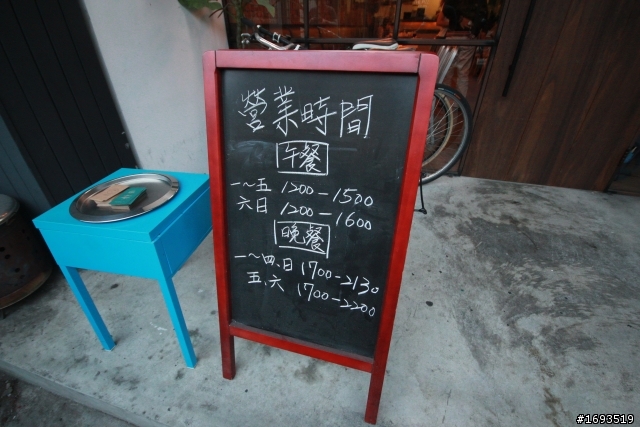 營業時間
午餐
一～五 1200-1500
六日 1200-1600
晚餐
一～四、日 1700-2130
五、六 1700-2200
#1693519